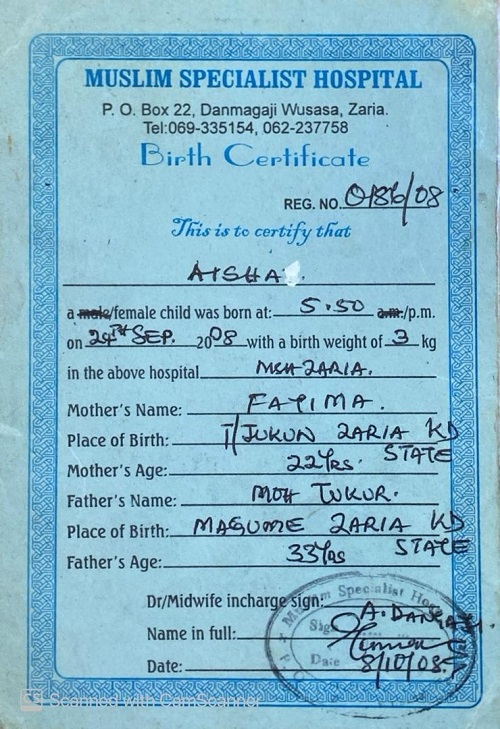 MUSLIM SPECIALIST HOSPITAL
P. O. Box 22, Danmagaji Wusasa, Zaria.
Tel:069-335154, 062-237758
Birth Certificate
REG. NO. 0186/08
This is to certify that
AISHA.
a male/female child was born at: 5.50 a.m./p.m.
on 24TH SEP. 2008 with a birth weight of 3 kg
in the above hospital MSH ZARIA.
Mother's Name: FATIMA.
Place of Birth: T/JUKUN ZARIA KD STATE
Mother's Age: 22Yrs.
Father's Name: MOH TUKUR.
Place of Birth: MAGUME ZARIA KD STATE
Father's Age: 33Yrs
Dr/Midwife incharge sign:
Muslim Specialist
Sign
Name in full:
Date
Date: 8/10/08.
Scanned with CamScanner